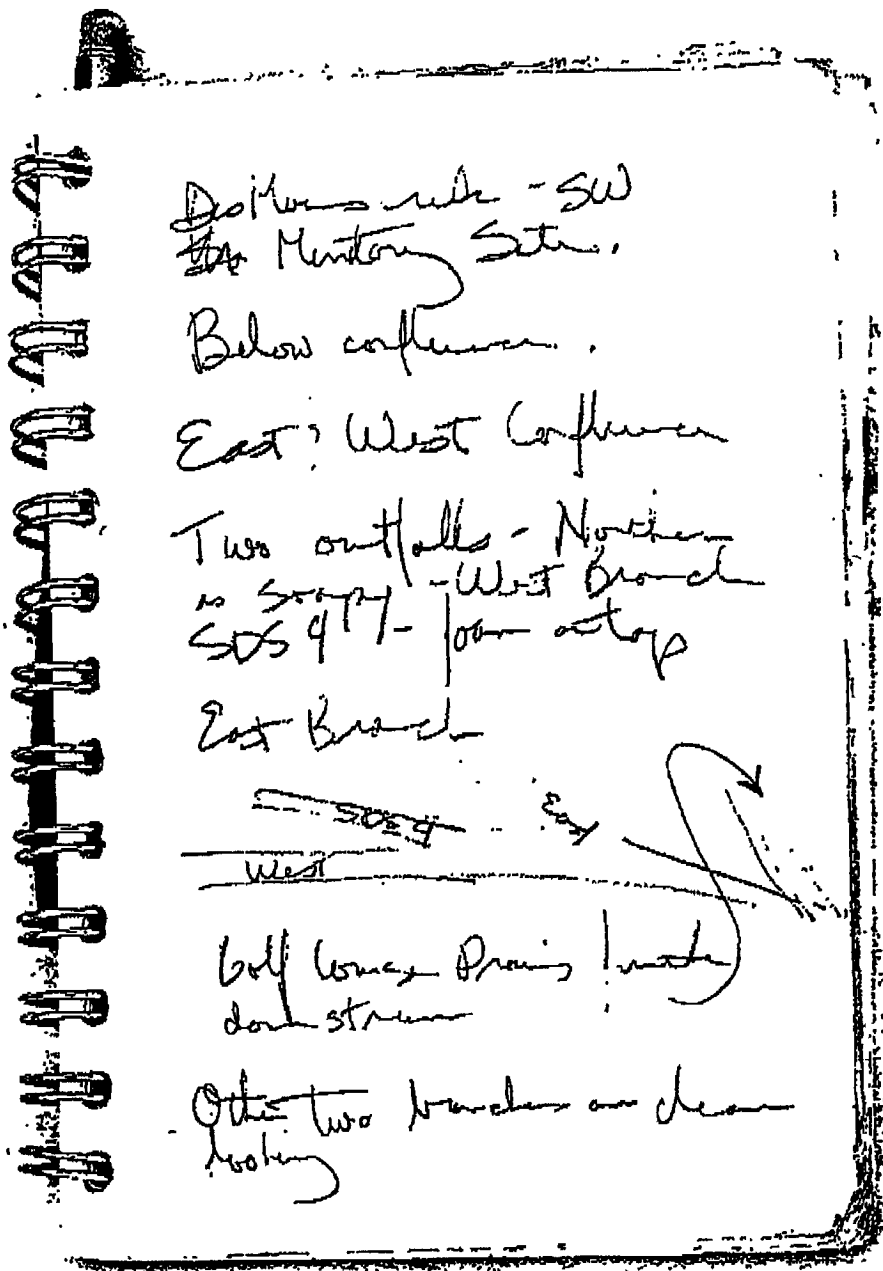 Des Moines creek - SW
Monitoring Site.
Below confluence.
East ? West Confluence
Two outfalls - Northern
is soapy - West Branch
SDS 4 - foam on top
East Branch
SDS 4 East
West
Golf Course Draining
downstream
Other two branches are clear
looking